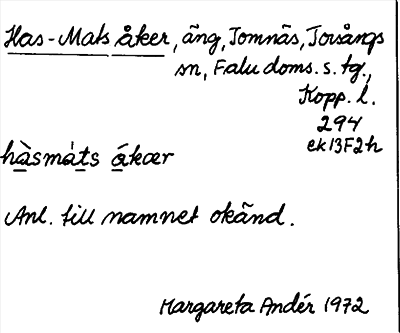 Has-Mats åker, äng, Tomnäs, Torsångs
sn, Falu doms. s. tg.,
Kopp. l.
294
ek 13F2h
hàsmàts ákær
Anl. till namnet okänd.
Margareta Andér 1972